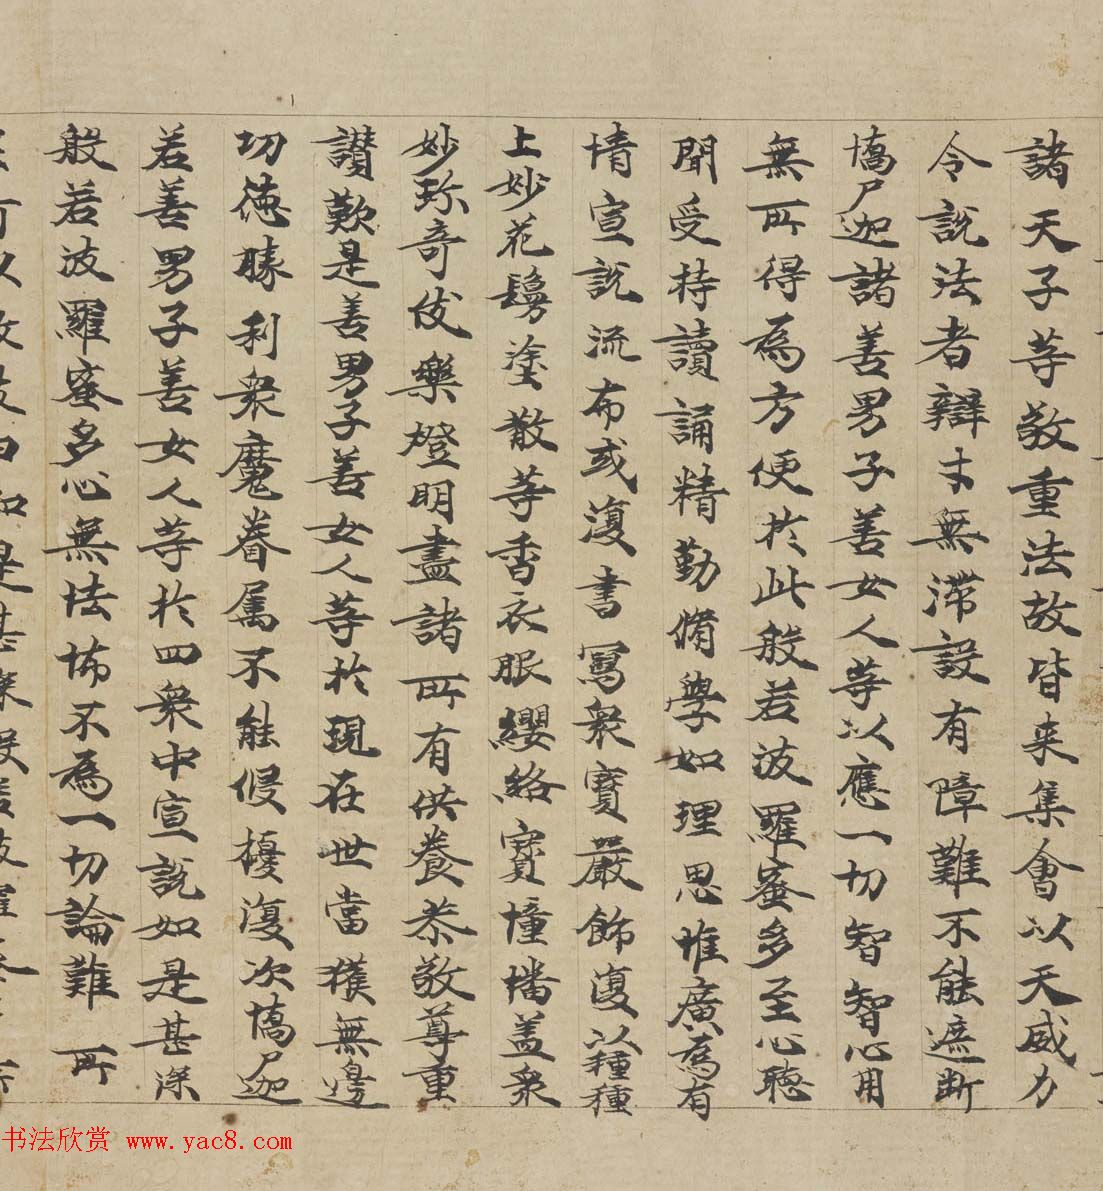 諸天子等敬重法故皆来集會以天威力
令說法者辯才無滯設有障難不能遮斷
憍尸迦諸善男子善女人等以應一切智智心用
無所得為方便於此般若波羅蜜多至心聽
聞受持讀誦精勤脩學如理思惟廣為有
情宣說流布或復書寫衆寶嚴飾復以種種
上妙花鬘塗散等香衣服纓絡寶幢幡盖衆
妙珎奇伎樂燈明盡諸所有供養恭敬尊重
讃歎是善男子善女人等於現在世當獲無邊
功德勝利衆魔眷属不能侵擾復次憍尸迦
若善男子善女人等於四衆中宣說如是甚深
般若波羅蜜多心無怯怖不為一切論難所
书法欣赏 www.yac8.com